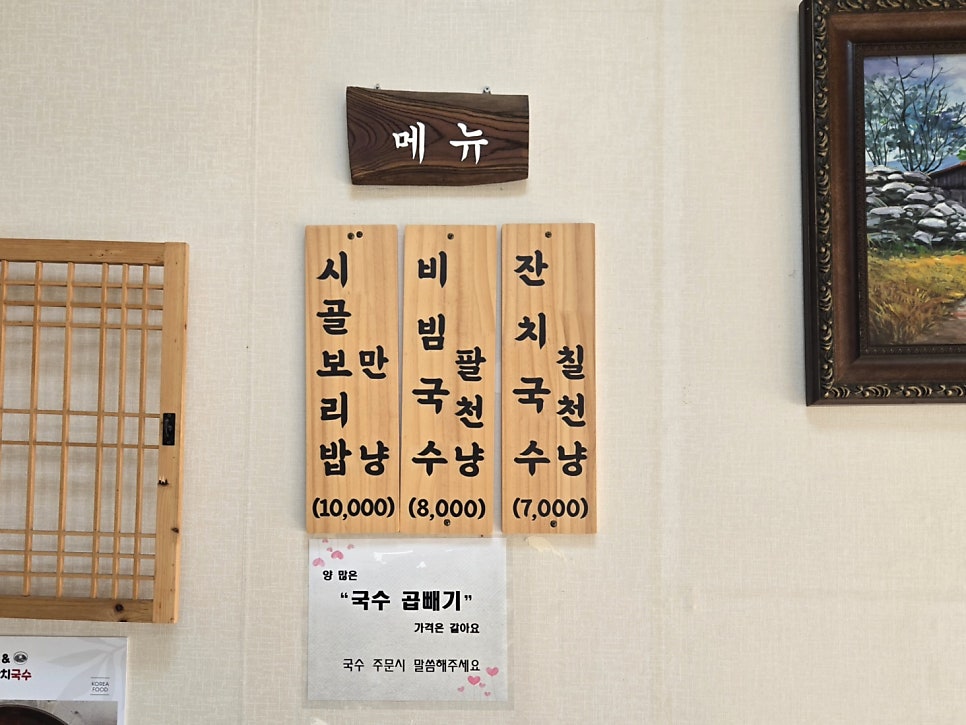 메뉴
시골보리밥
만냥
(10,000)
비빔국수
팔천냥
(8,000)
잔치국수
칠천냥
(7,000)
양 많은
“국수 곱빼기”
가격은 같아요
국수 주문시 말씀해주세요
&
치국수
KOREA
FOOD